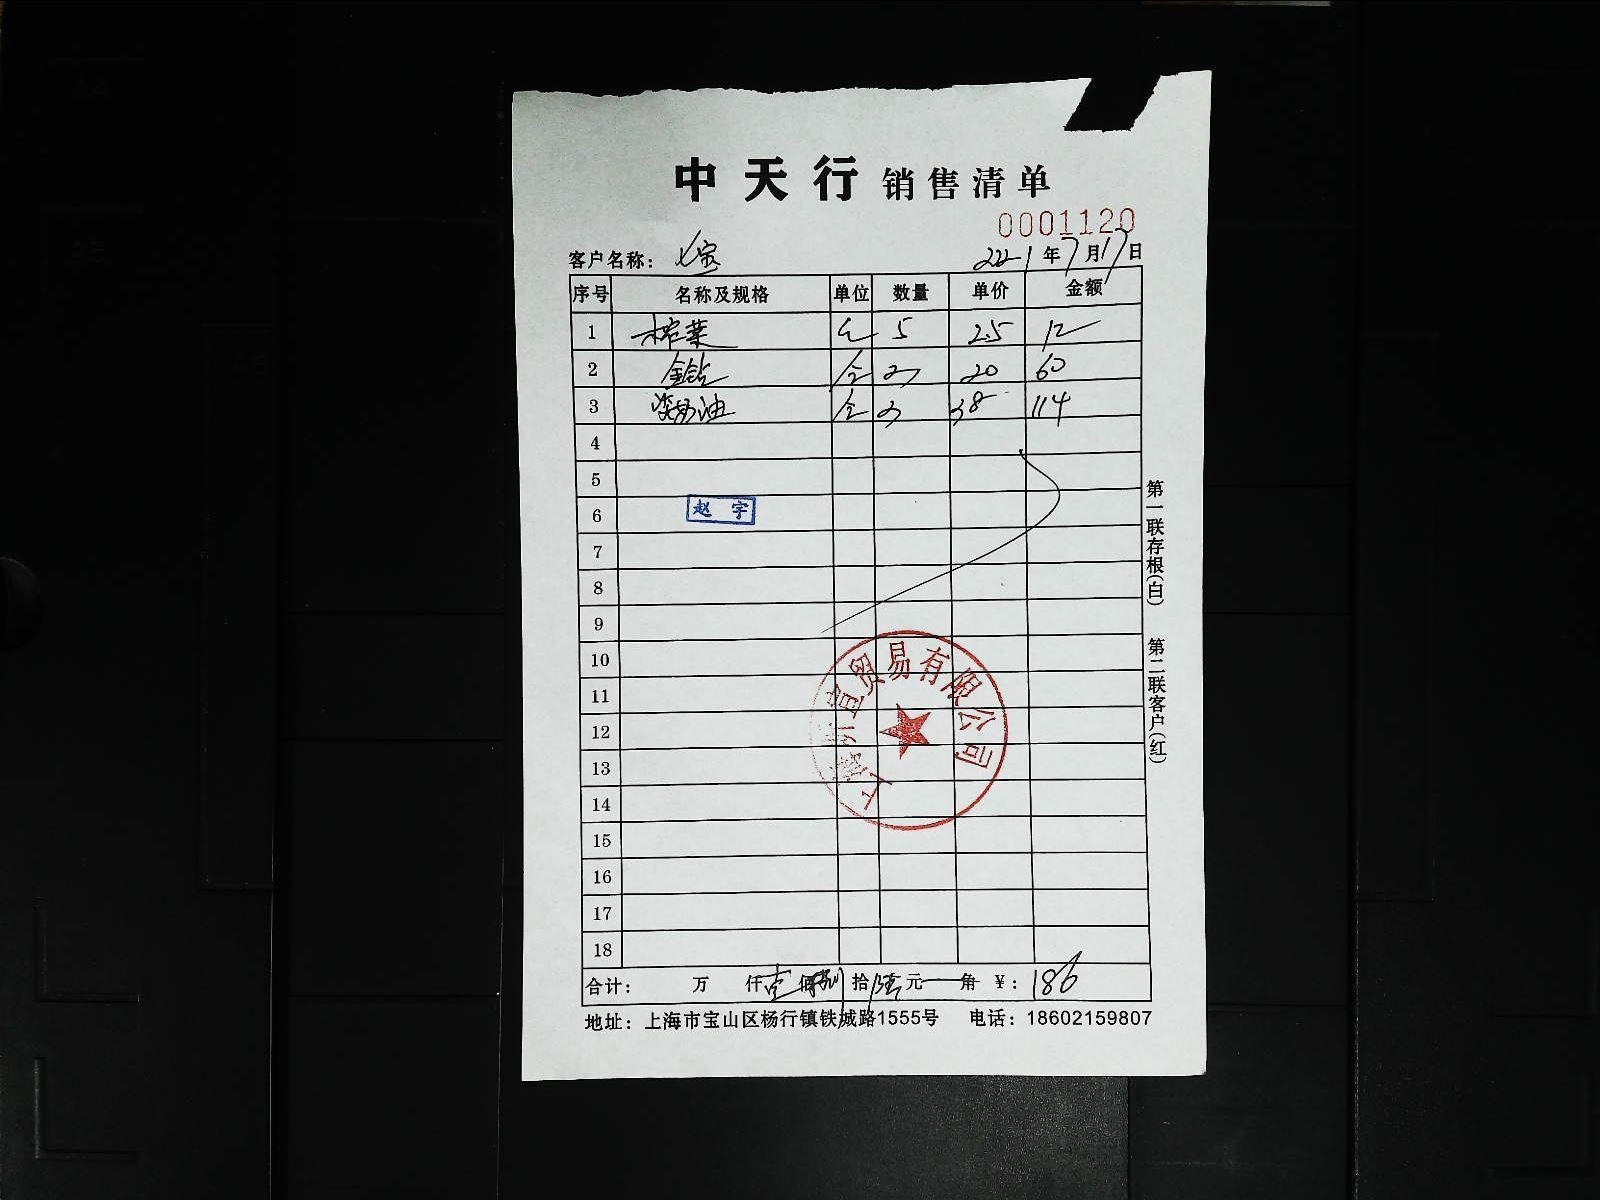 中天行 销售清单
0001120
客户名称： 七宝 2021年7月17日
序号 名称及规格 单位 数量 单价 金额
1 榨菜 5 2.5 12
2 金钻 仝 3 20 60
3 淡奶油 仝 3 38 114
4
5
6 赵宇
7
8
9
10
11
12
13
14
15
16
17
18
上海 直贸易有限公司
合计： 万 仟 壹 佰 捌 拾 陆 元 角 ￥： 186
地址： 上海市宝山区杨行镇铁城路1555号 电话： 18602159807
第一联存根(白) 第二联客户(红)